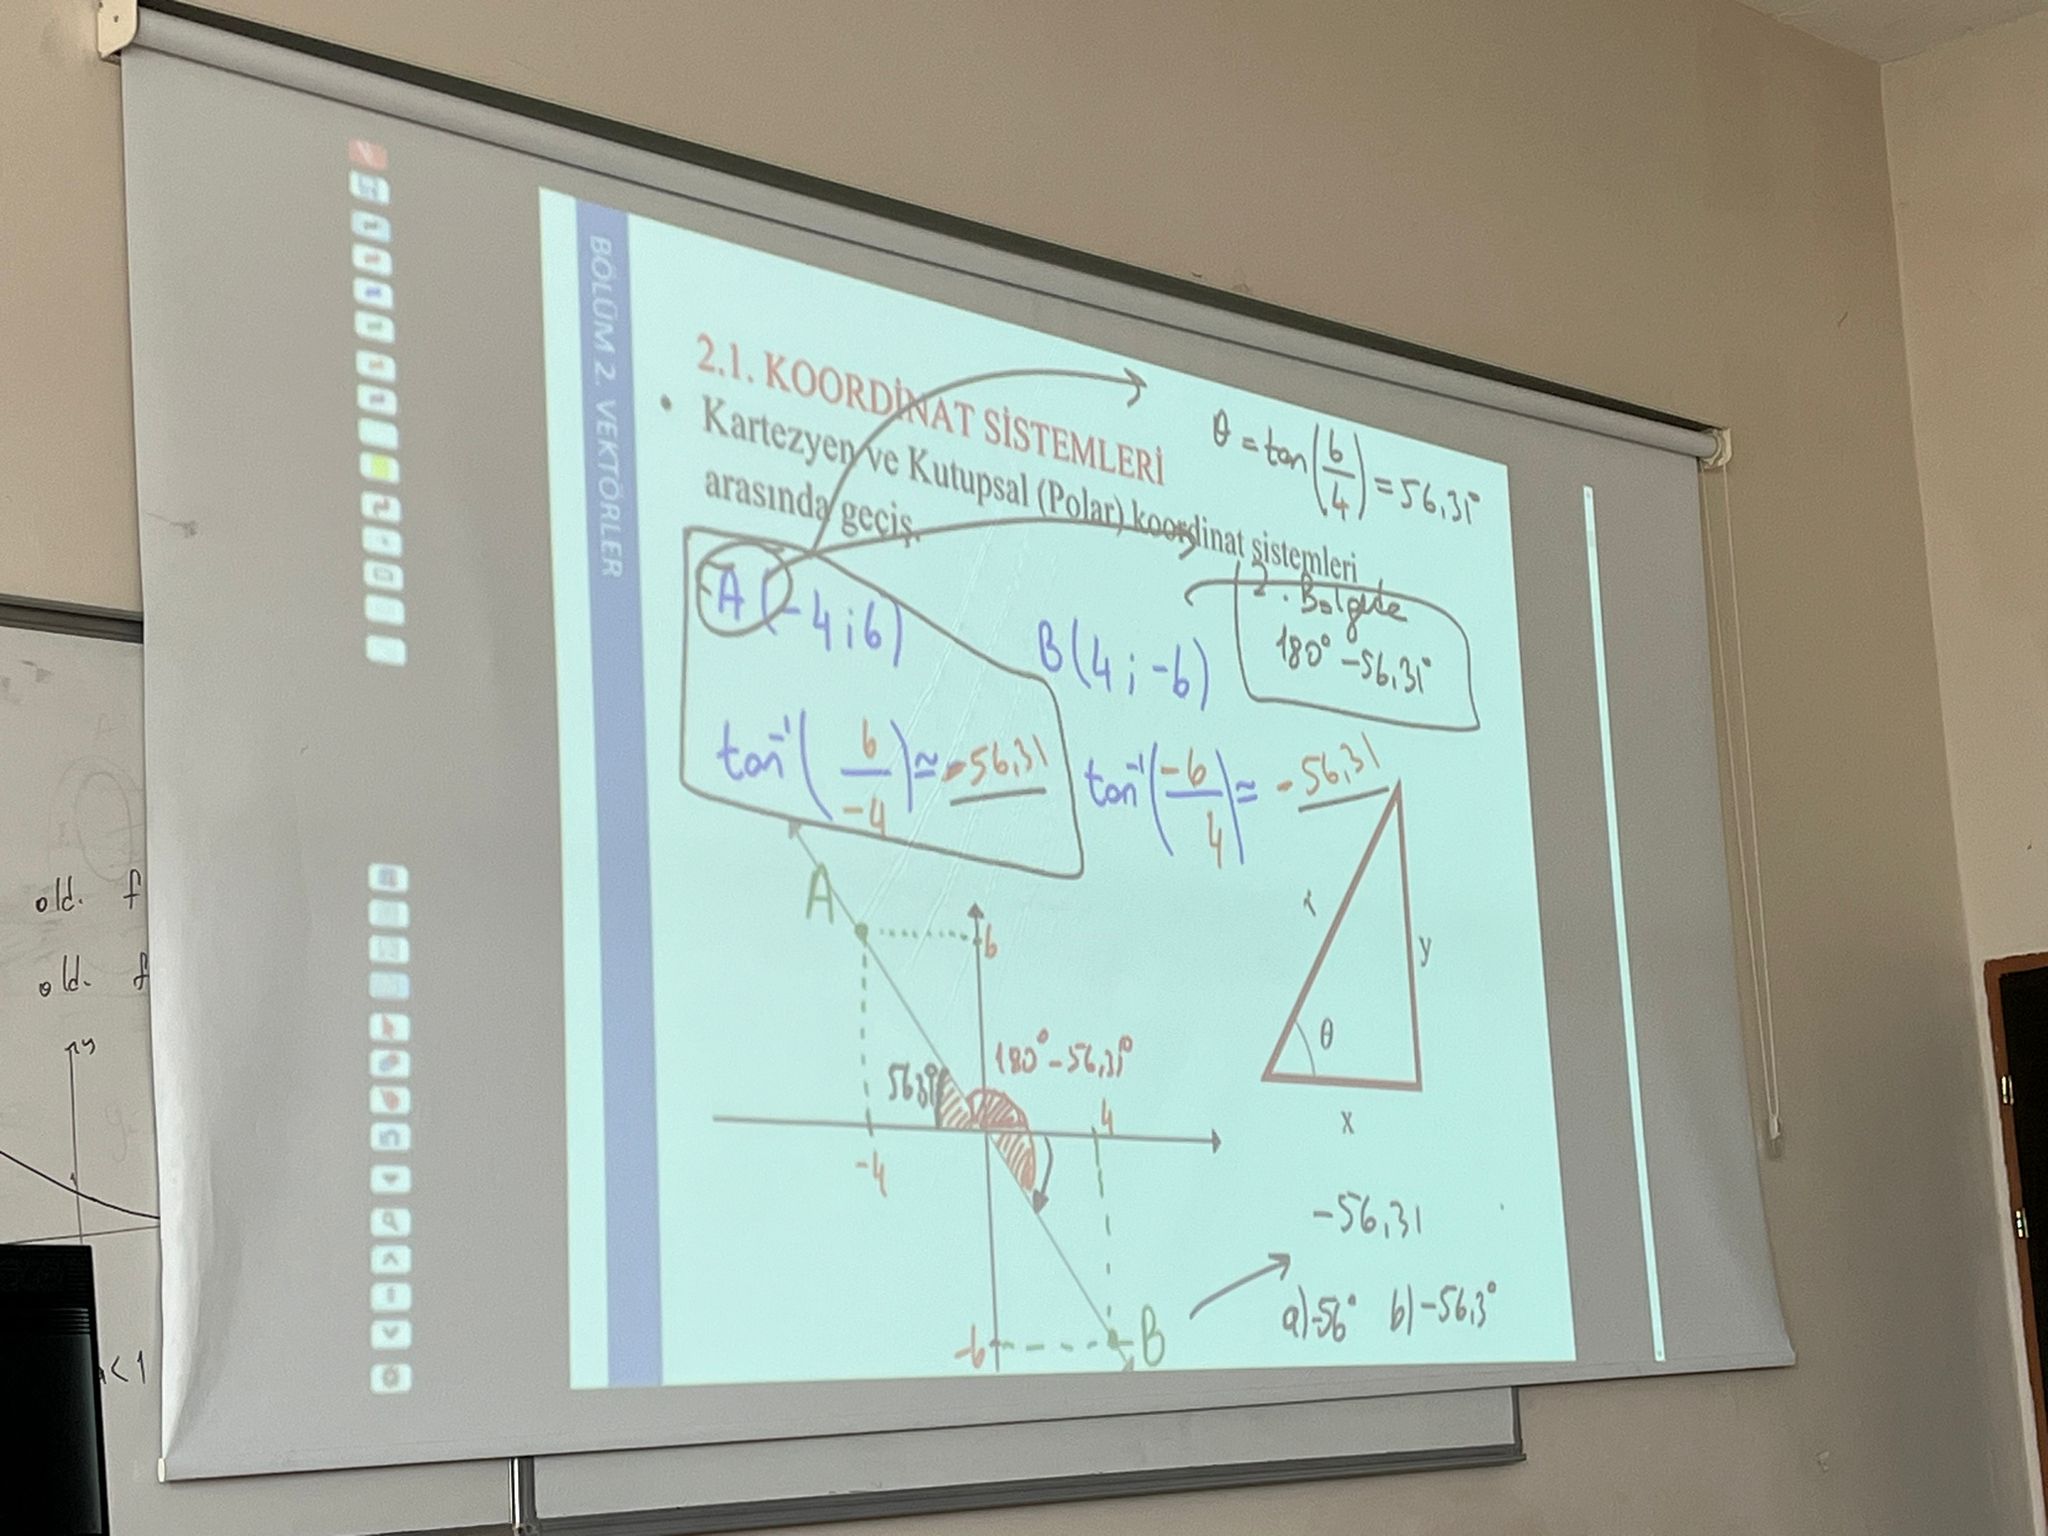 BÖLÜM 2. VEKTÖRLER
2.1. KOORDİNAT SİSTEMLERİ
• Kartezyen ve Kutupsal (Polar) koordinat sistemleri
arasında geçiş.
θ = tan(6/4) = 56,31°
2. Bölgede
180° - 56,31°
A(-4;6)
B(4;-6)
tan⁻¹(6/-4) ≅ -56,31
tan⁻¹(-6/4) ≅ -56,31
A
6
r
y
θ
x
56,31°
180° - 56,31°
4
-4
-6
B
-56,31
a) -56° b) -56,3°
old. f
old. f
y
< 1